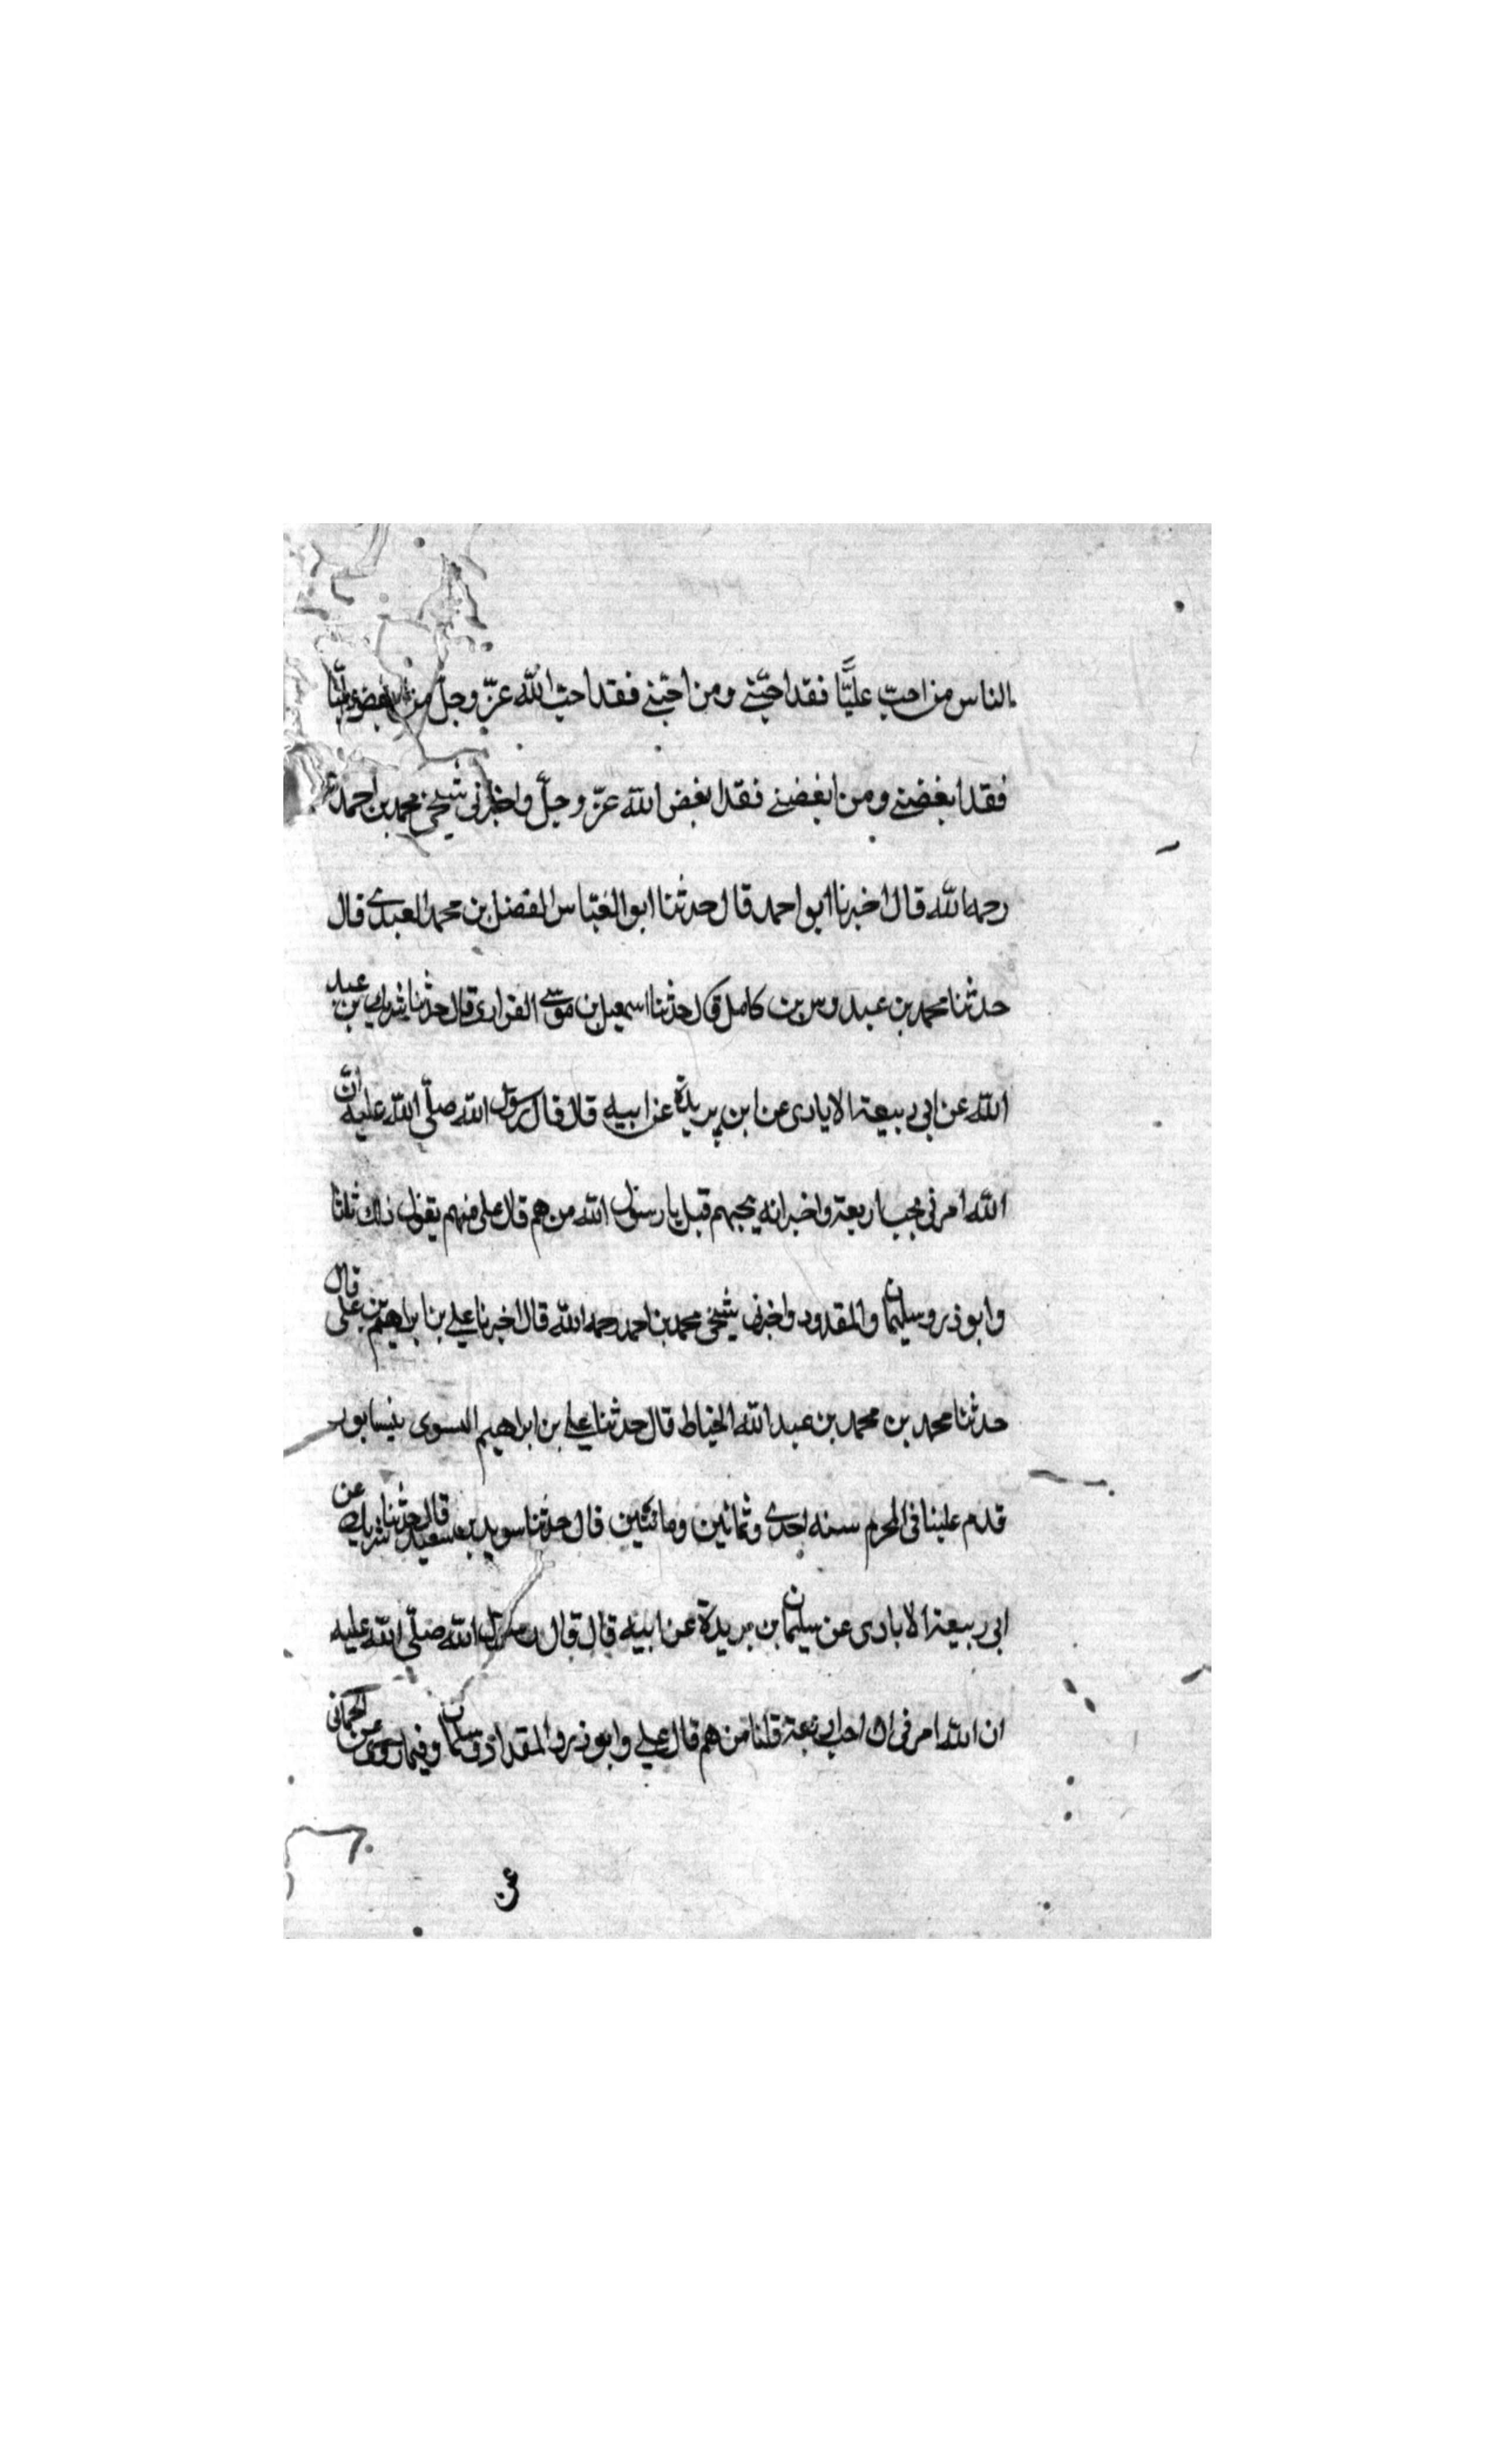 الناس من احبّ عليًّا فقد احبّني ومن احبّني فقد احبّ الله عزّ وجلّ ومن ابغض عليّا
فقد ابغضني ومن ابغضني فقد ابغض الله عزّ وجلّ واخبرني شيخي محمد بن احمد
رحمه الله قال اخبرنا ابو احمد قال حدثنا ابو العبّاس الفضل بن محمد العبدي قال
حدثنا محمد بن عبدوس بن كامل قال حدثنا اسمعيل بن موسى الفزارى قال حدثنا شريك بن عبد
الله عن ابي ربيعة الايادى عن ابن بريدة عن ابيه قال قال رسول الله صلّى الله عليه انّ
الله امرني بحب اربعة واخبر انه يحبهم قيل يا رسول الله من هم قال على منهم يقول ذلك ثلثا
وابو ذر وسليمان والمقدود واخبرنى شيخى محمد بن احمد رحمه الله قال اخبرنا على بن ابراهيم بن على قال
حدثنا محمد بن محمد بن عبد الله الخياط قال حدثنا على بن ابراهيم النسوى بنيسابور
قدم علينا فى المحرم سنه احدى وثمانين ومائتين قال حدثنا سويد بن سعيد قال حدثنا شريك عن
ابى ربيعة الايادى عن سليمان بن بريدة عن ابيه قال قال رسول الله صلّى الله عليه
ان الله امرنى ان احب اربعة قلنا من هم قال على وابو ذر والمقداد وسلمان وفيما روى عن الحمانى
عن